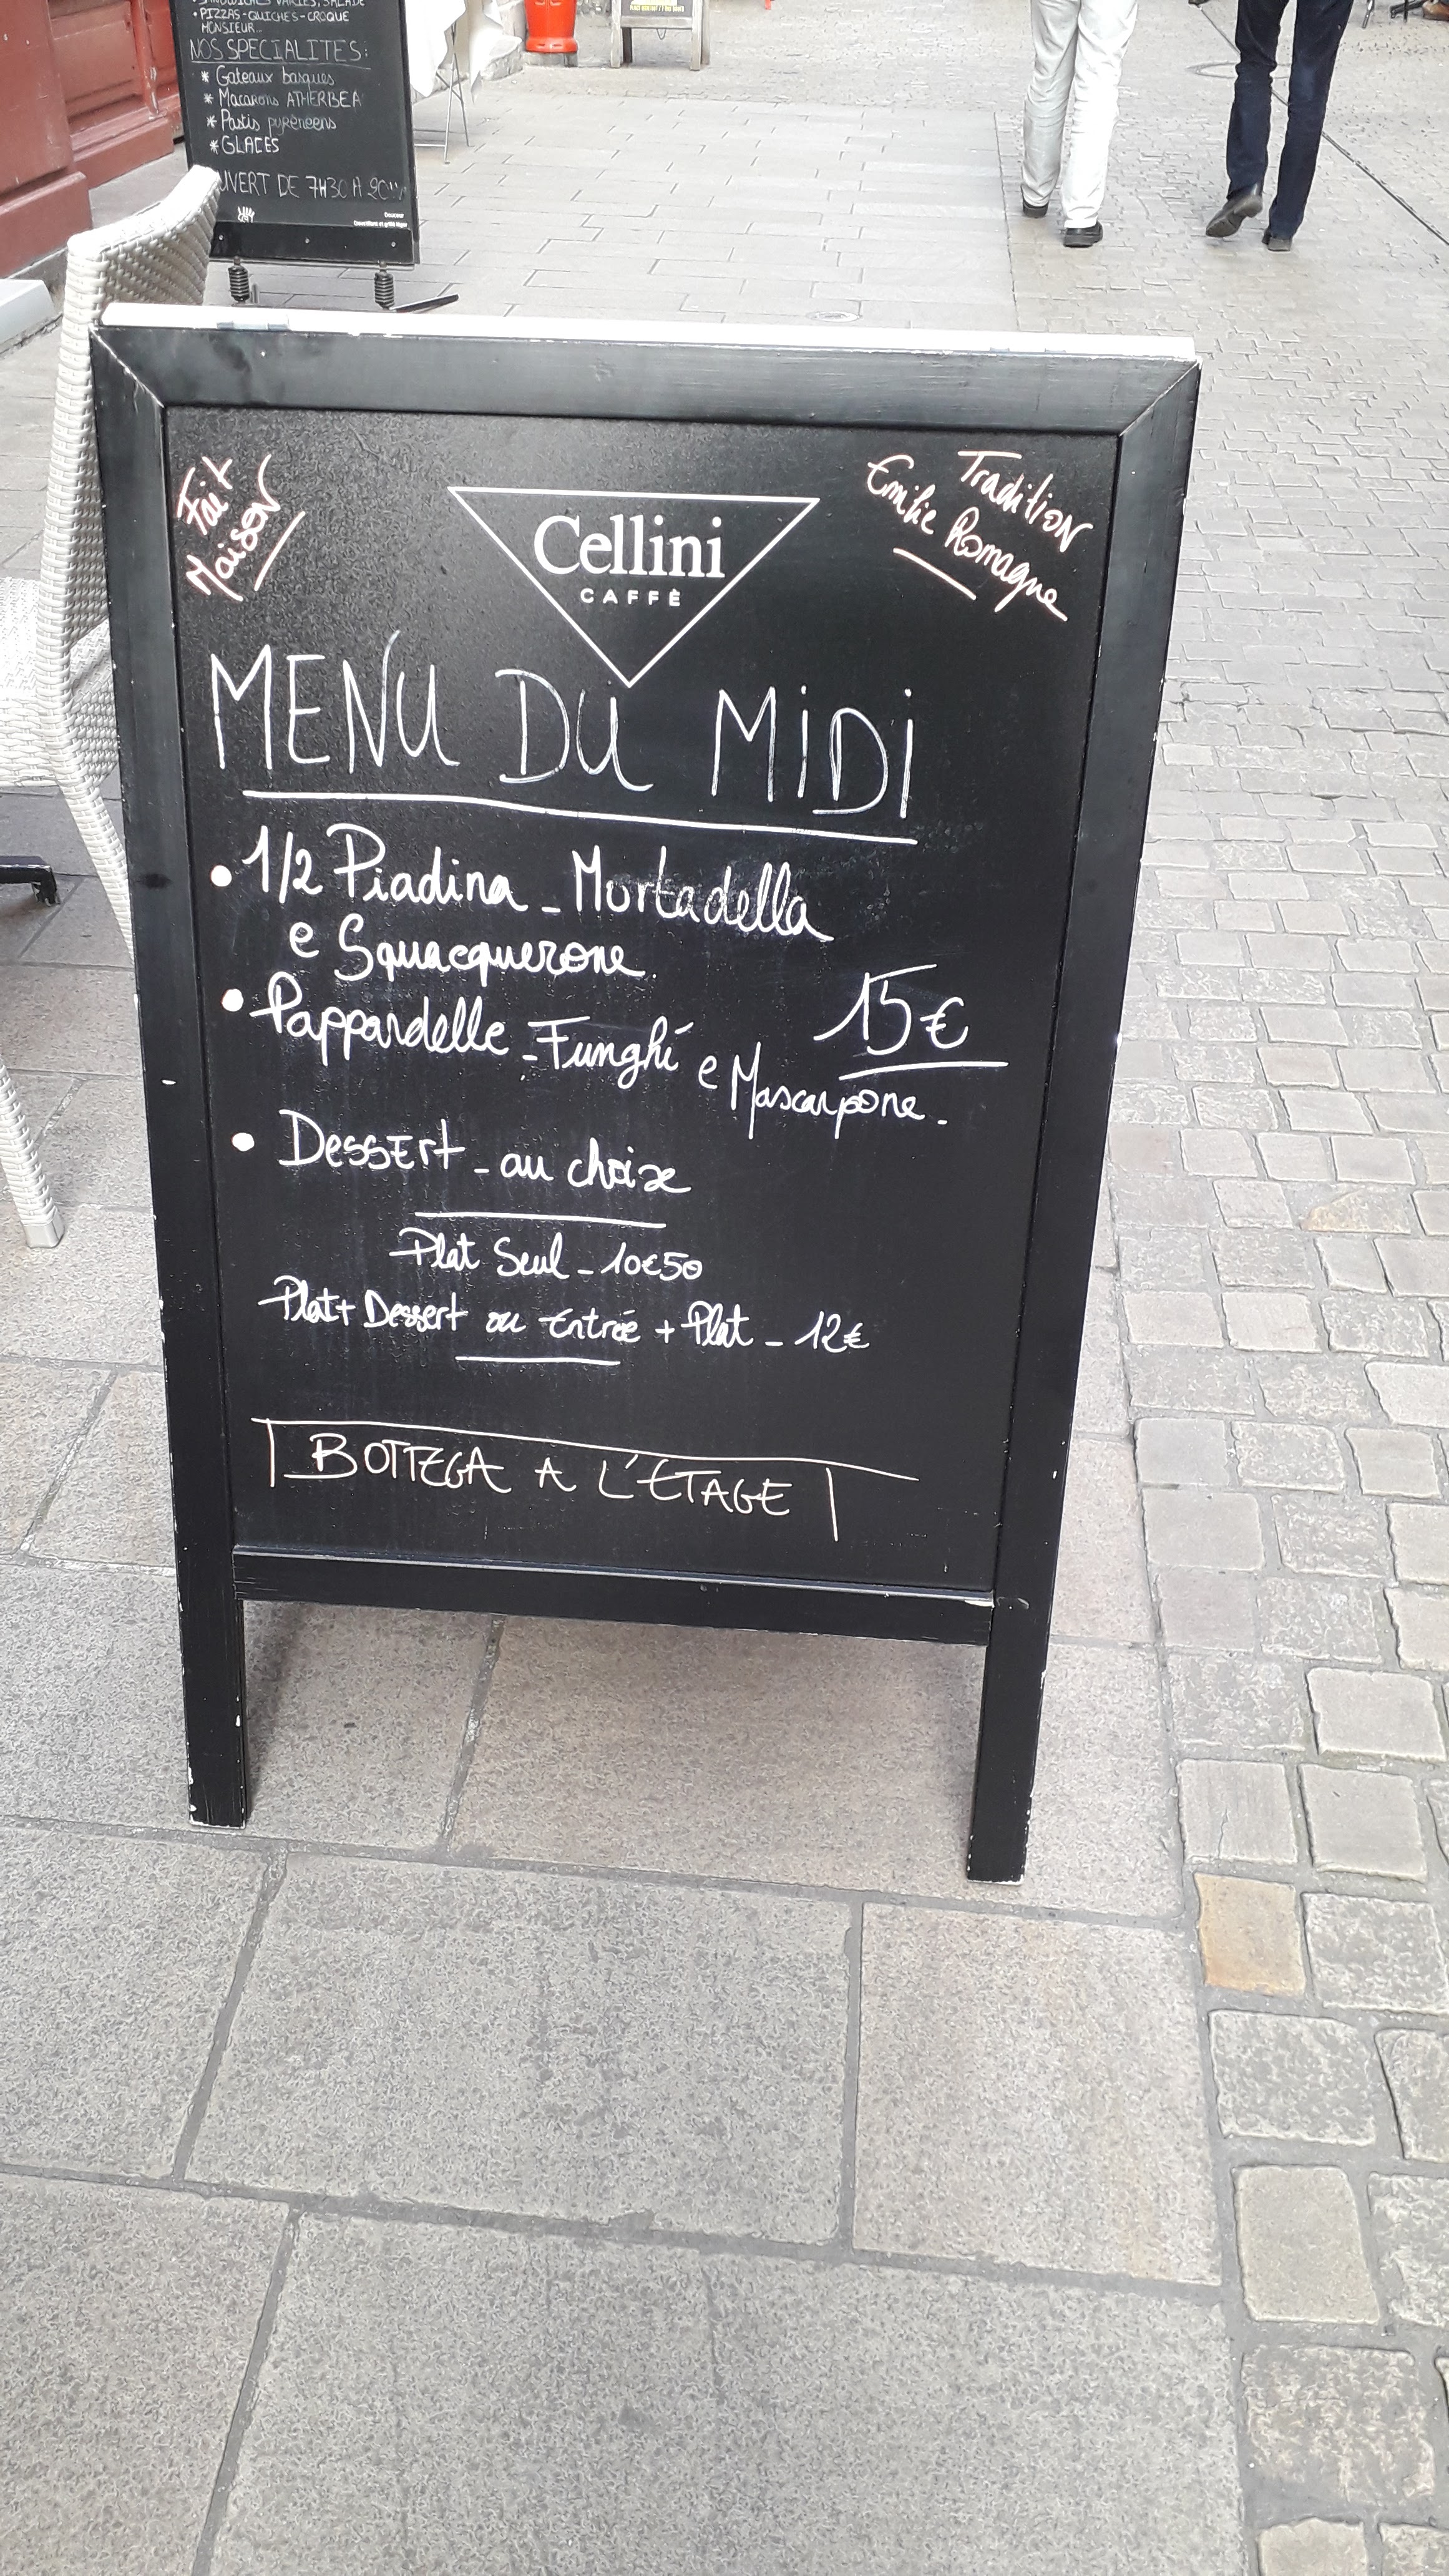 • PIZZAS - QUICHES - CROQUE
MONSIEUR...
NOS SPECIALITES:
* Gateaux basques
* Macarons ATHERBEA
* Pastis pyrénéens
* GLACES
UVERT DE 7H30 A 20
Fait
Maison
Tradition
Emilie Romagne
Cellini
CAFFÈ
MENU DU MIDI
• 1/2 Piadina - Mortadella
e Squacquerone.
• Pappardelle - Funghi e Mascarpone.
15€
• Dessert - au choix
Plat Seul - 10€50
Plat + Dessert ou Entrée + Plat - 12€
BOTTEGA A L'ETAGE